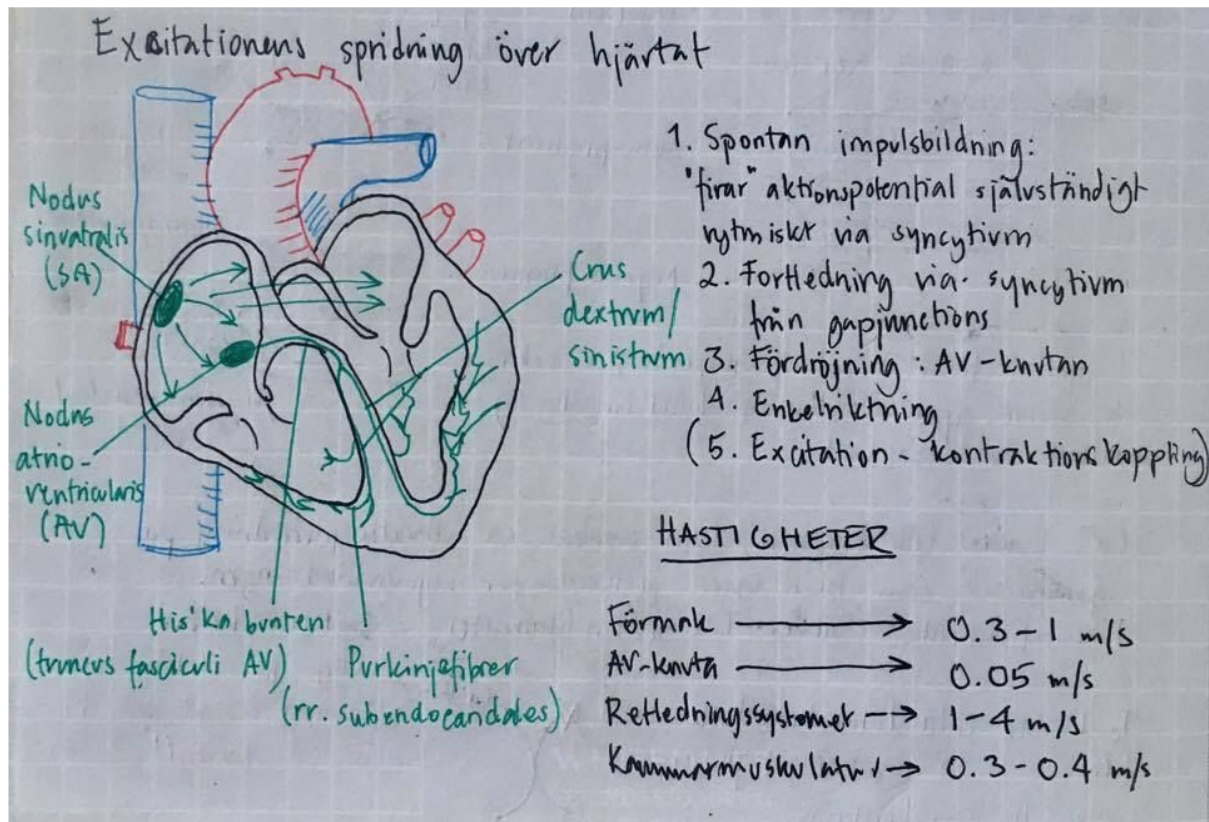 Excitationens spridning över hjärtat
Nodus
sinuatralis
(SA)
Nodus
atrio-
ventricularis
(AV)
His'ka bunten
(truncus fasciculi AV)
Purkinjefibrer
(rr. subendocardales)
Crus
dextrum/
sinistrum
1. Spontan impulsbildning:
"firar" aktionspotential självständigt
rytmiskt via syncytium
2. Fortledning via syncytium
från gapjunctions
3. Fördröjning: AV-knutan
4. Enkelriktning
(5. Excitation - kontraktionskoppling)
HASTIGHETER
Förmak → 0.3-1 m/s
AV-knuta → 0.05 m/s
Retledningssystemet → 1-4 m/s
Kammarmuskulatur → 0.3-0.4 m/s